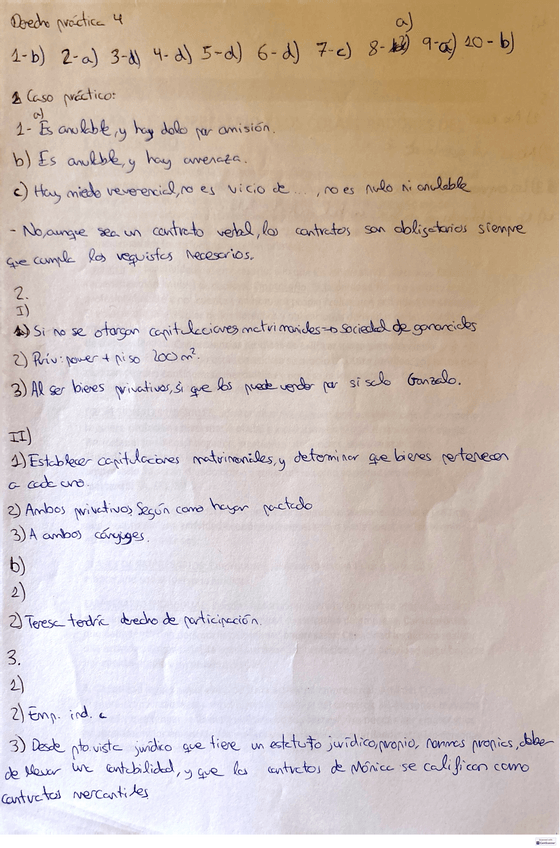 Derecho práctica 4
a)
1-b) 2-a) 3-d) 4-d) 5-d) 6-d) 7-c) 8- 9-a) 10-b)
1 Caso práctico:
a)
1- Es anulable, y hay dolo por omisión.
b) Es anulable, y hay amenaza.
c) Hay miedo reverencial, no es vicio de ..., no es nulo ni anulable
- No, aunque sea un contrato verbal, los contratos son obligatorios siempre
que cumpla los requisitos necesarios.
2.
I)
1) Si no se otorgan capitulaciones matrimoniales → sociedad de gananciales
2) Priv: power + piso 200 m².
3) Al ser bienes privativos, si que los puede vender por si solo Gonzalo.
II)
1) Establecer capitulaciones matrimoniales, y determinar que bienes pertenecen
a cada uno.
2) Ambos privativos según como hayan pactado
3) A ambos cónyuges.
b)
1)
2) Teresa tendría derecho de participación.
3.
1)
2) Emp. ind.
3) Desde pto. vista jurídico que tiene un estatuto jurídico, propio, normas propias, deber
de llevar una contabilidad, y que los contratos de Mónica se califican como
contratos mercantiles